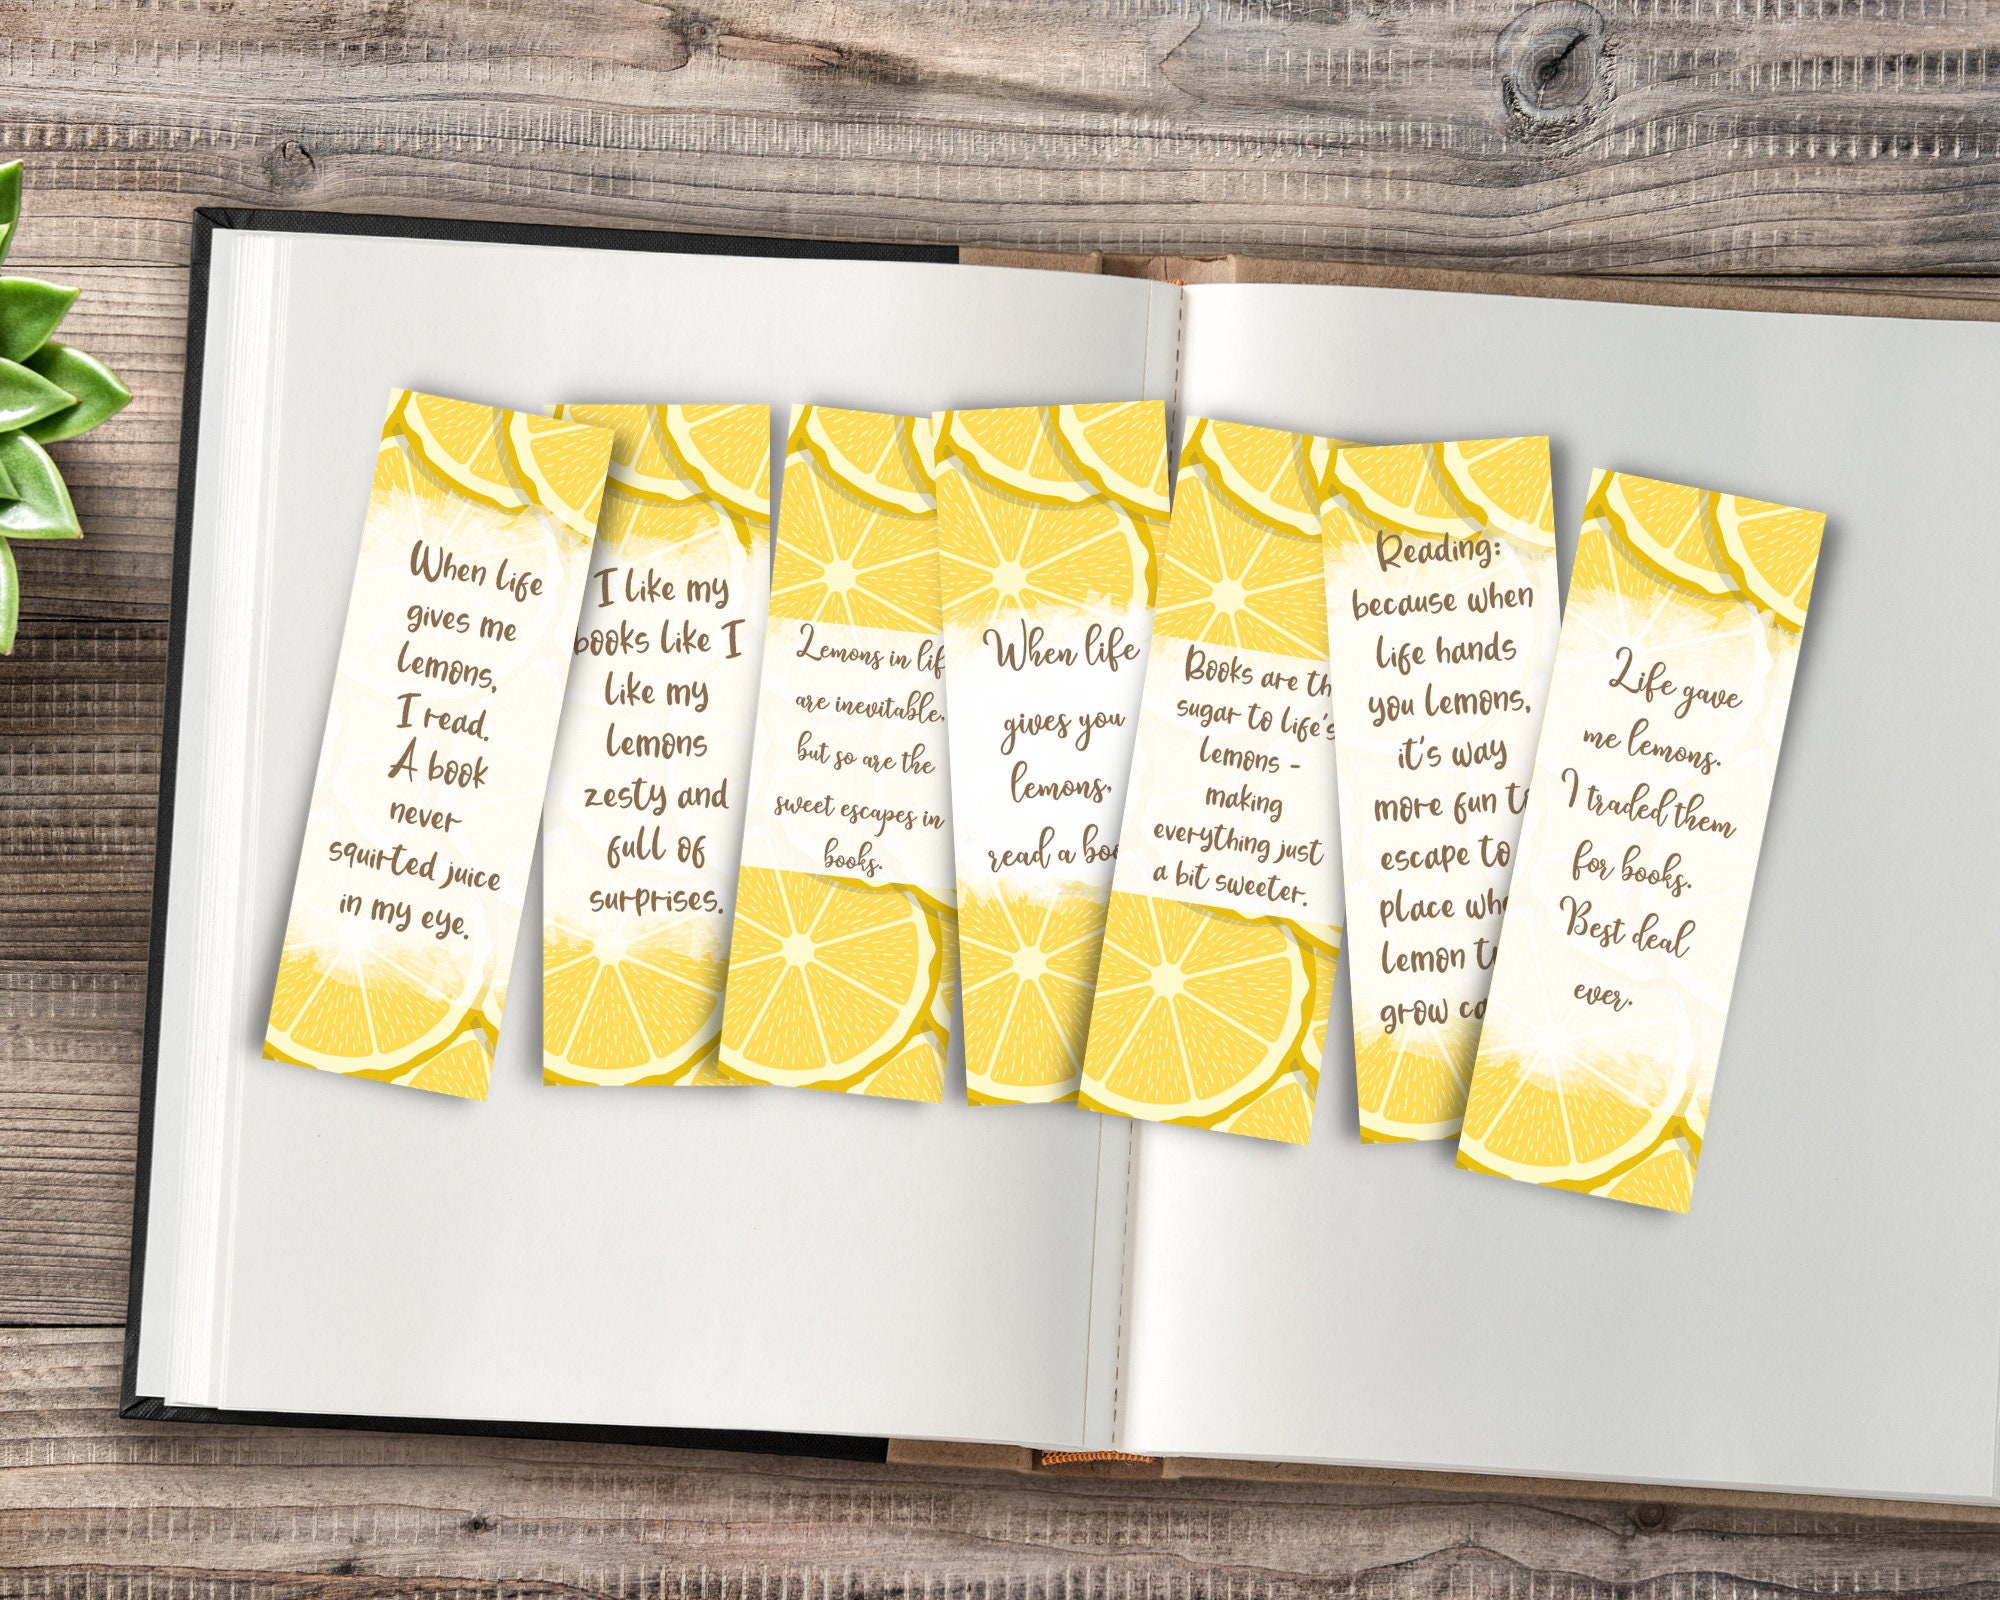 When life
gives me
lemons,
I read.
A book
never
squirted juice
in my eye.
I like my
books like I
like my
lemons
zesty and
full of
surprises.
Lemons in
are inevitable,
but so are the
sweet escapes in
books.
When life
gives you
lemons,
read a
Books are
sugar to life's
lemons -
making
everything just
a bit sweeter.
Reading:
because when
life hands
you lemons,
it's way
more fun
escape to
place
lemon
grow
Life gave
me lemons.
I traded them
for books.
Best deal
ever.